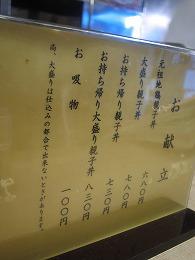 お献立
元祖地鶏親子丼 六八〇円
大盛り親子丼 七八〇円
お持ち帰り親子丼 七三〇円
お持ち帰り大盛り親子丼 八三〇円
お吸物 一〇〇円
尚、大盛りは仕込みの都合で出来ないときがあります。